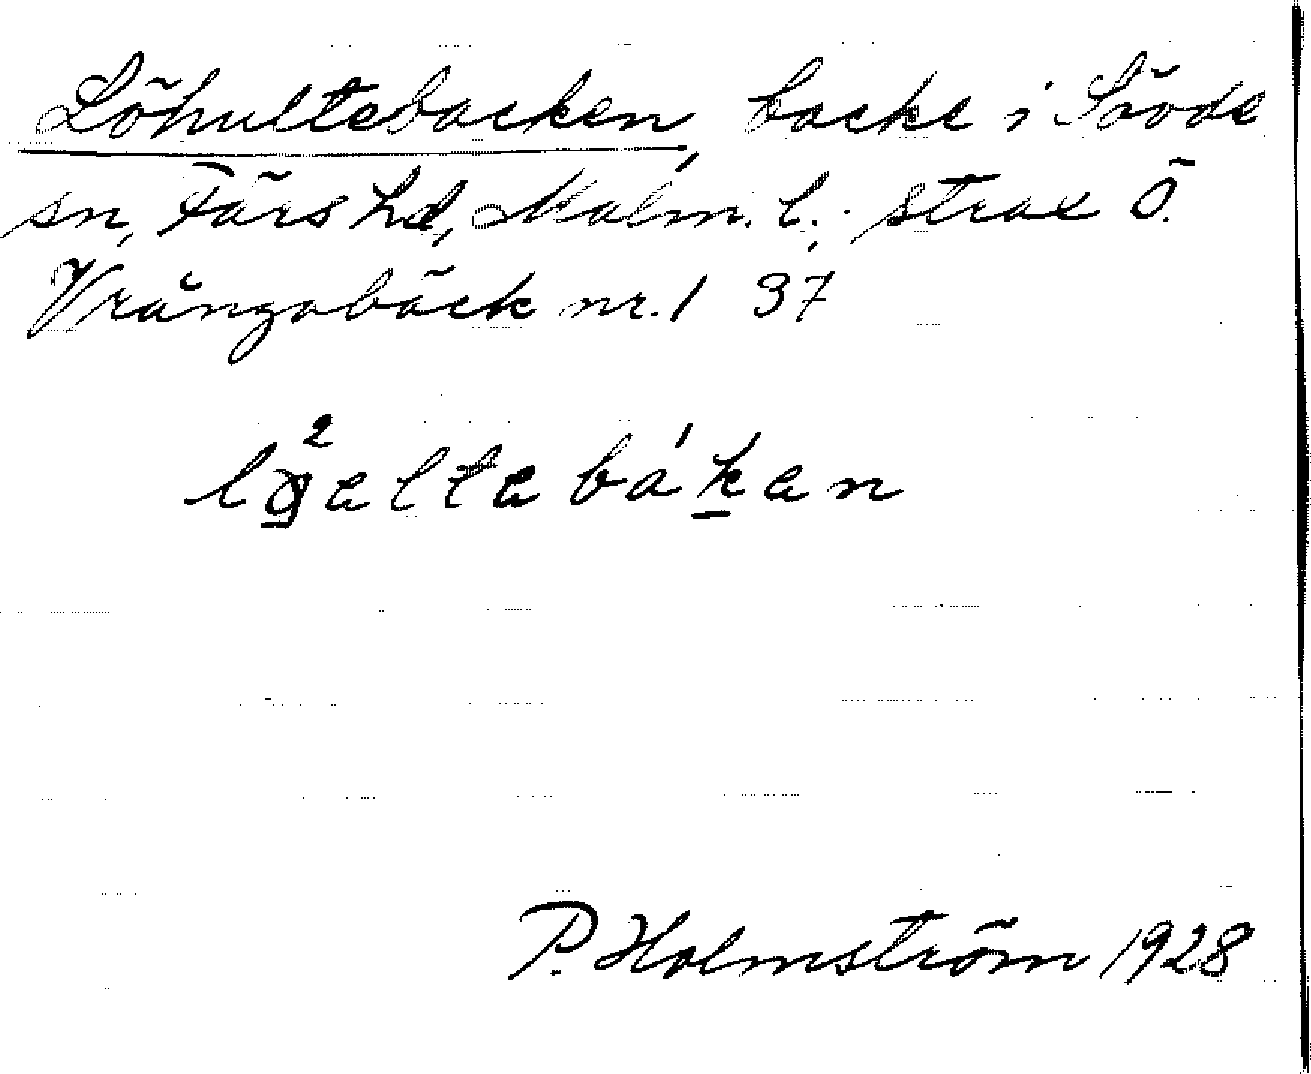 Löhultebacken, backe i Sövde
sn, Färs hd, Malm. l.; strax ö.
Vrångabäck nr. 1 37
P. Holmström 1928